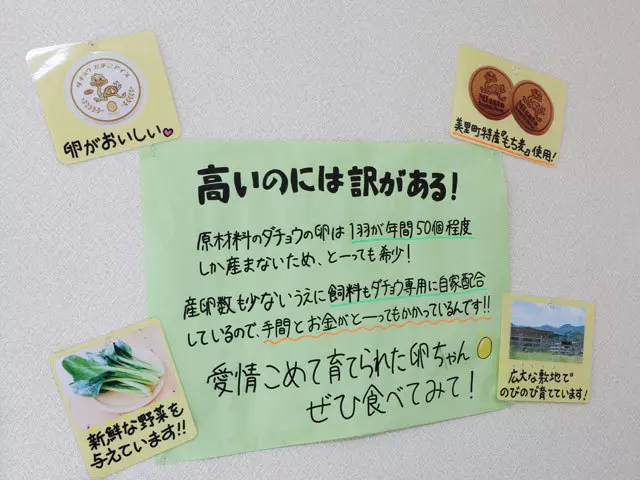 ダチョウたまごアイス
卵がおいしい
美里町特産『もち麦』使用!
高いのには訳がある!
原材料のダチョウの卵は1羽が年間50個程度
しか産まないため、と一っても希少!
産卵数も少ないうえに飼料もダチョウ専用に自家配合
しているので、手間とお金がと一ってもかかっているんです!!
愛情こめて育てられた卵ちゃん
ぜひ食べてみて!
新鮮な野菜を
与えています!!
広大な敷地で
のびのび育てています!